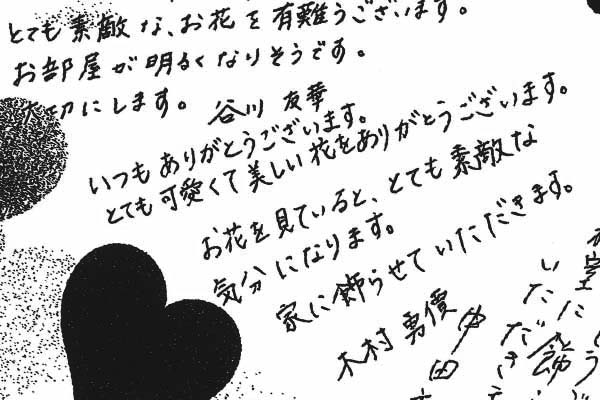 とても素敵な、お花を有難うございます。
お部屋が明るくなりそうです。
大切にします。
谷川 友華
いつもありがとうございます。
とても可愛くて美しい花をありがとうございます。
お花を見ていると、とても素敵な
気分になります。
家に飾らせていただきます。
木村 勇
いただき